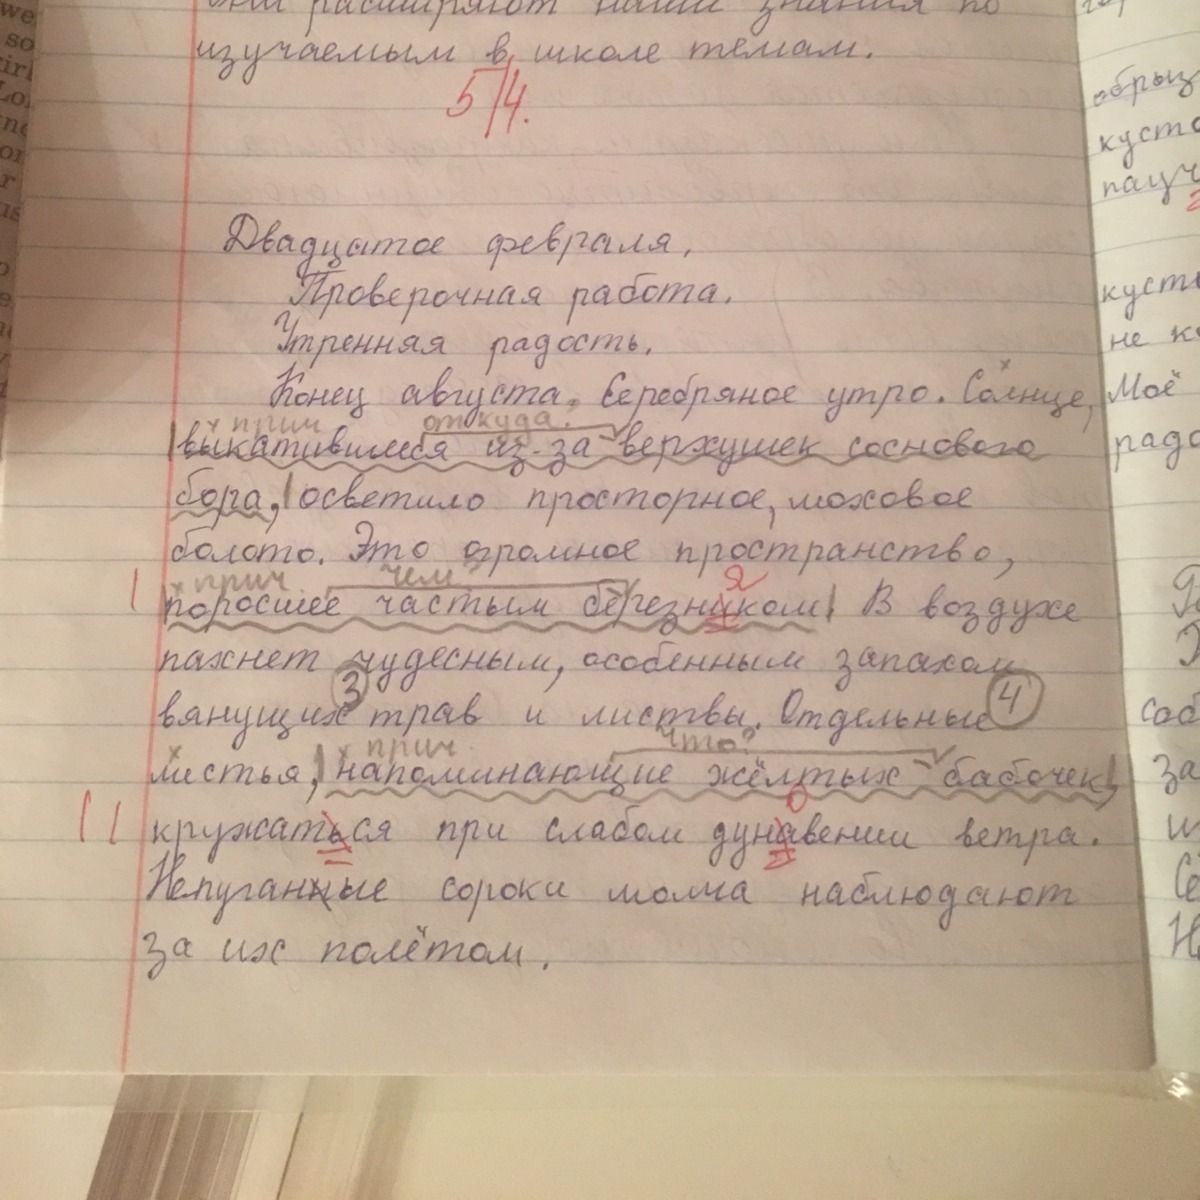 они расширяют наши знания по
изучаемым в школе темам.
5/4.
Двадцатое февраля.
Проверочная работа.
Утренняя радость.
Конец августа. Серебряное утро. Солнце,
прич откуда?
выкатившееся из-за верхушек соснового
бора, осветило просторное, моховое
болото. Это огромное пространство,
прич. чем? я
поросшее частым березником. В воздухе
пахнет чудесным, особенным запахом
3 4
вянущих трав и листвы. Отдельные
прич. что?
листья, напоминающие жёлтых бабочек,
о
кружаться при слабом дунавении ветра.
Непуганные сороки молча наблюдают
за их полётом.
обрыз
кусто
пауч
куст
не к
Моё
радо
соб
за
и
Сё